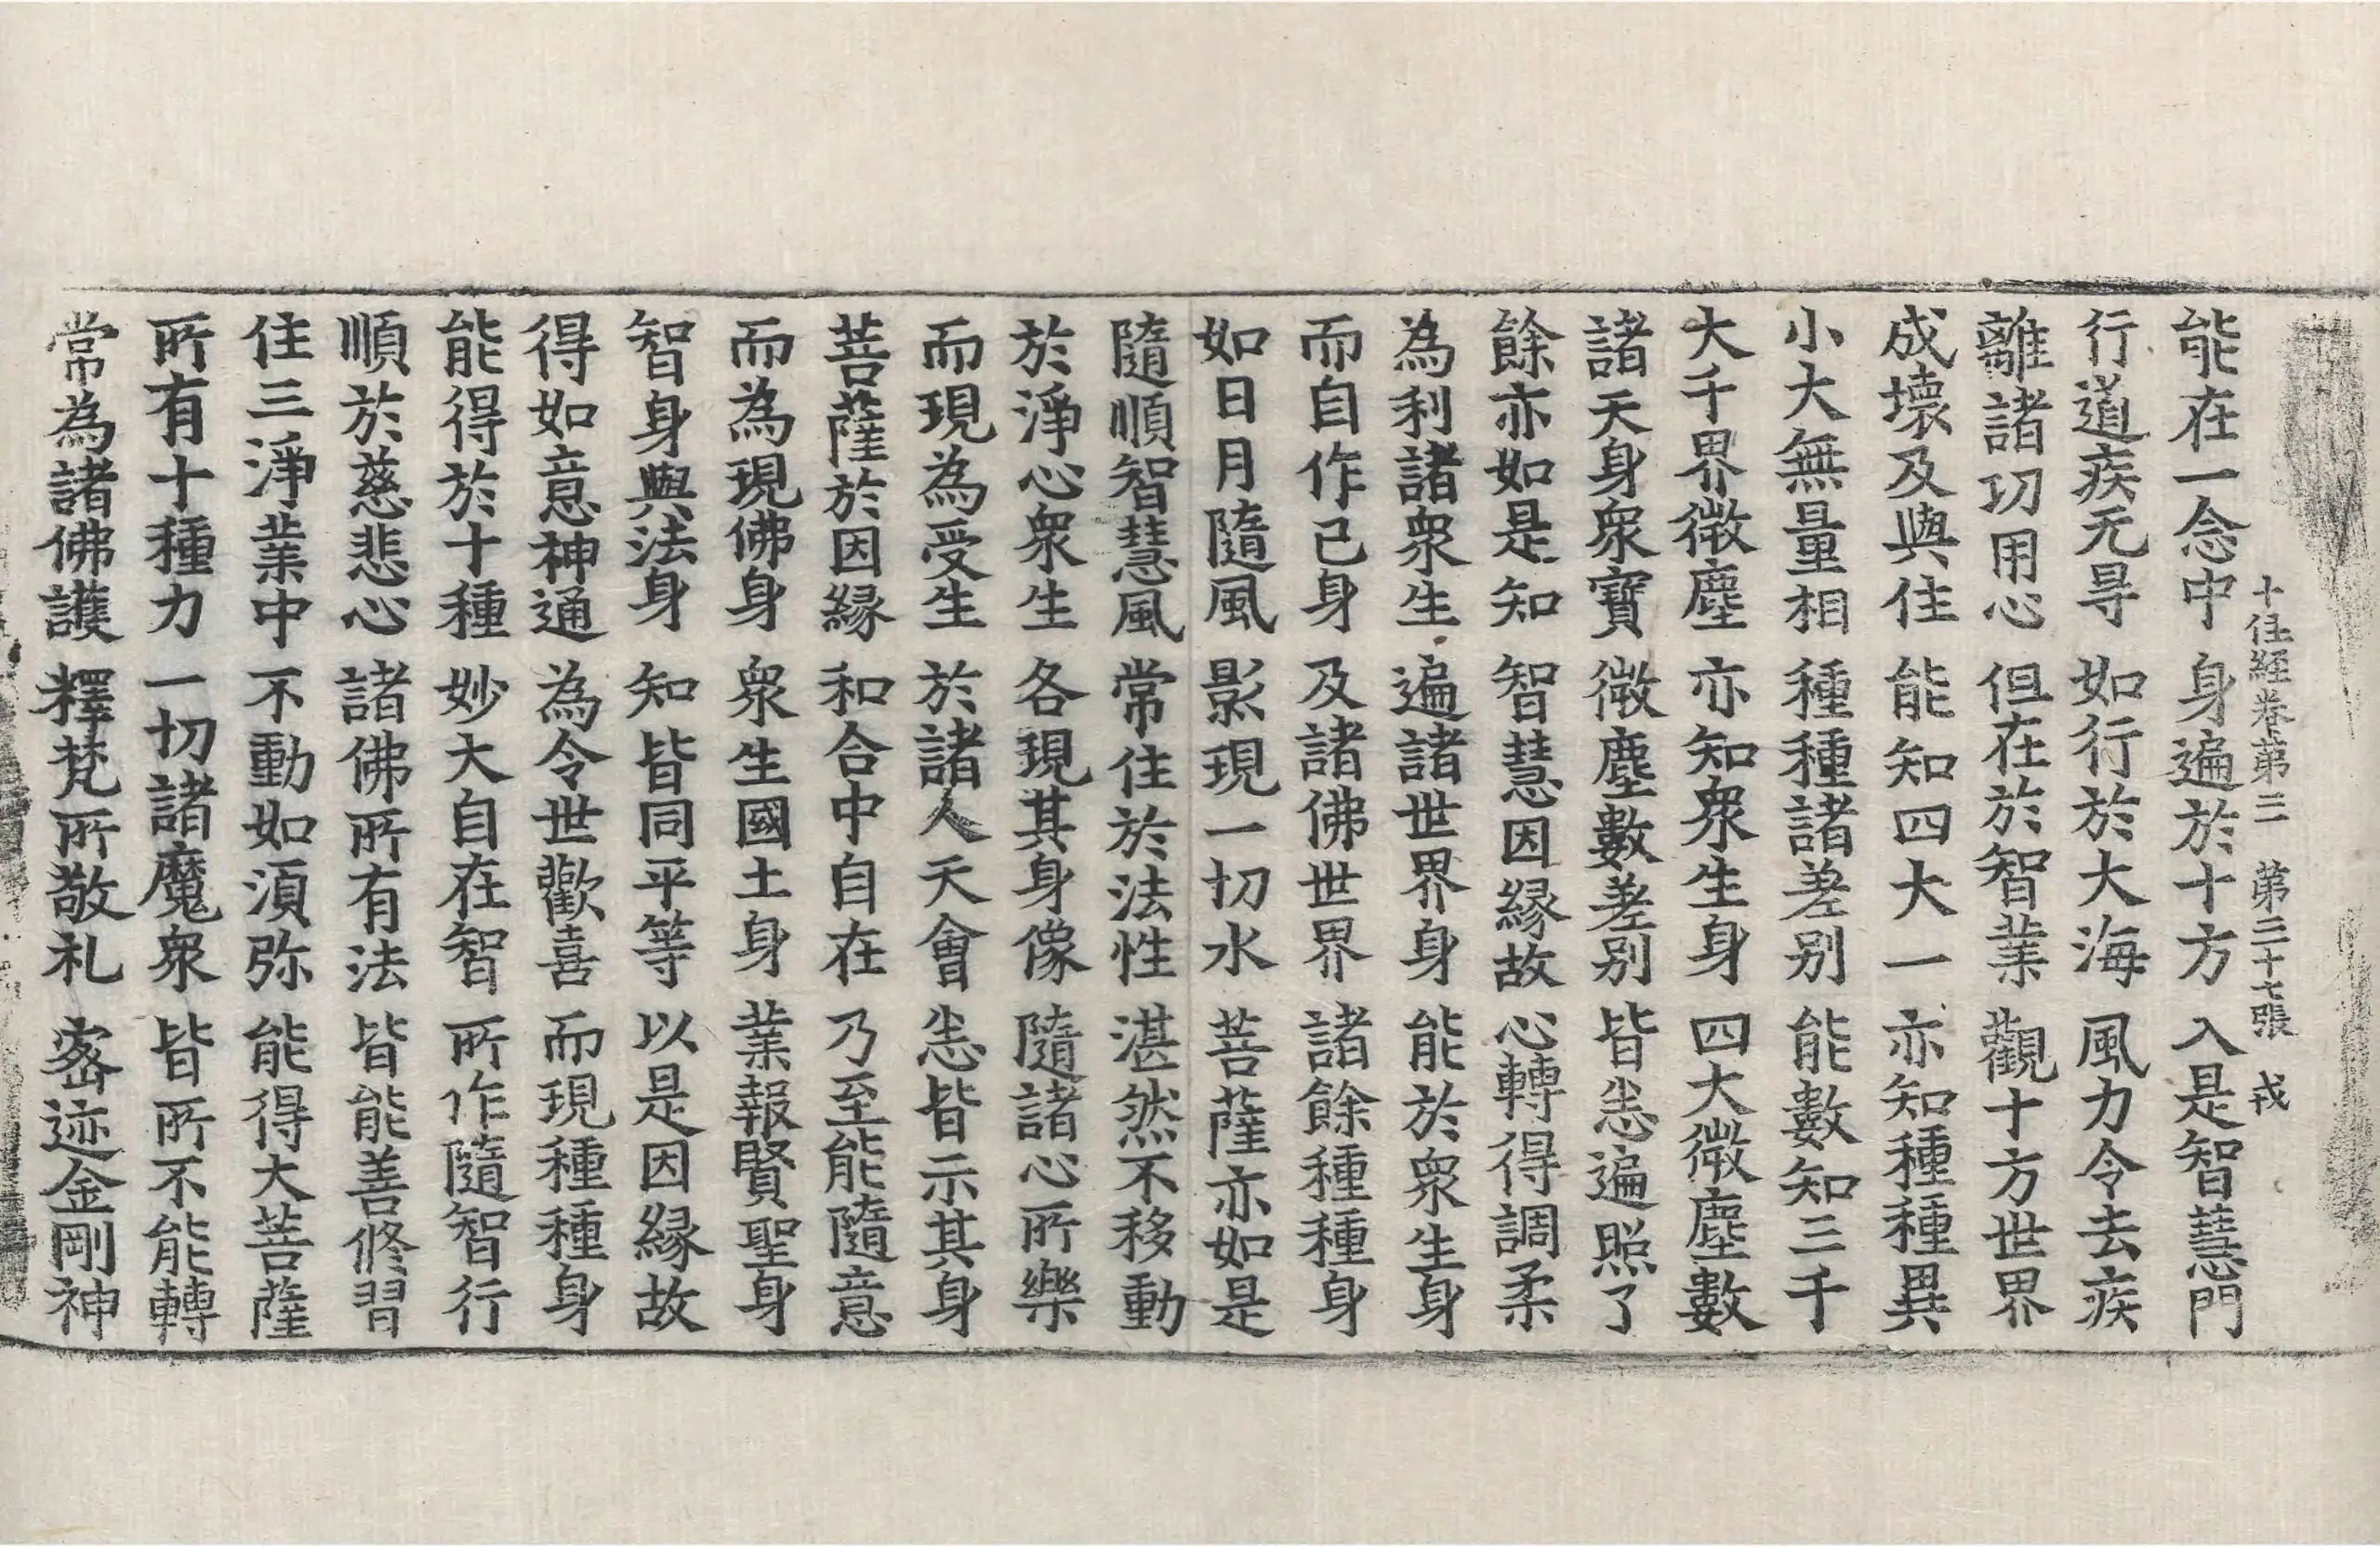 十住經卷第三　第三十七張　戎
能在一念中　身遍於十方　入是智慧門
行道疾无㝵　如行於大海　風力令去疾
離諸功用心　但在於智業　觀十方世界
成壞及與住　能知四大一　亦知種種異
小大無量相　種種諸差别　能數知三千
大千界微塵　亦知衆生身　四大微塵數
諸天身衆寶　微塵數差别　皆悉遍照了
餘亦如是知　智慧因緣故　心轉得調柔
為利諸衆生　遍諸世界身　能於衆生身
而自作已身　及諸佛世界　諸餘種種身
如日月隨風　影現一切水　菩薩亦如是
隨順智慧風　常住於法性　湛然不移動
於淨心衆生　各現其身像　隨諸心所樂
而現為受生　於諸人天會　悉皆示其身
菩薩於因緣　和合中自在　乃至能隨意
而為現佛身　衆生國土身　業報賢聖身
智身與法身　知皆同平等　以是因緣故
得如意神通　為令世歡喜　而現種種身
能得於十種　妙大自在智　所作隨智行
順於慈悲心　諸佛所有法　皆能善修習
住三淨業中　不動如湏弥　能得大菩薩
所有十種力　一切諸魔衆　皆所不能轉
常為諸佛護　釋梵所敬礼　密迹金剛神